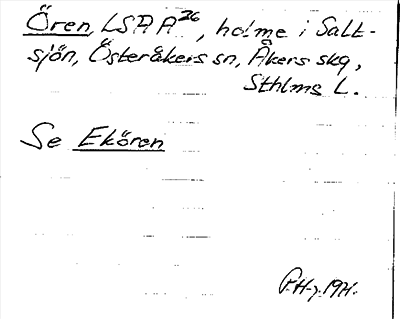 Ören, LSA A26, holme i Salt-
sjön, Österåkers sn, Åkers skg,
Sthlms L.
Se Ekören
P.H-y. 1971.